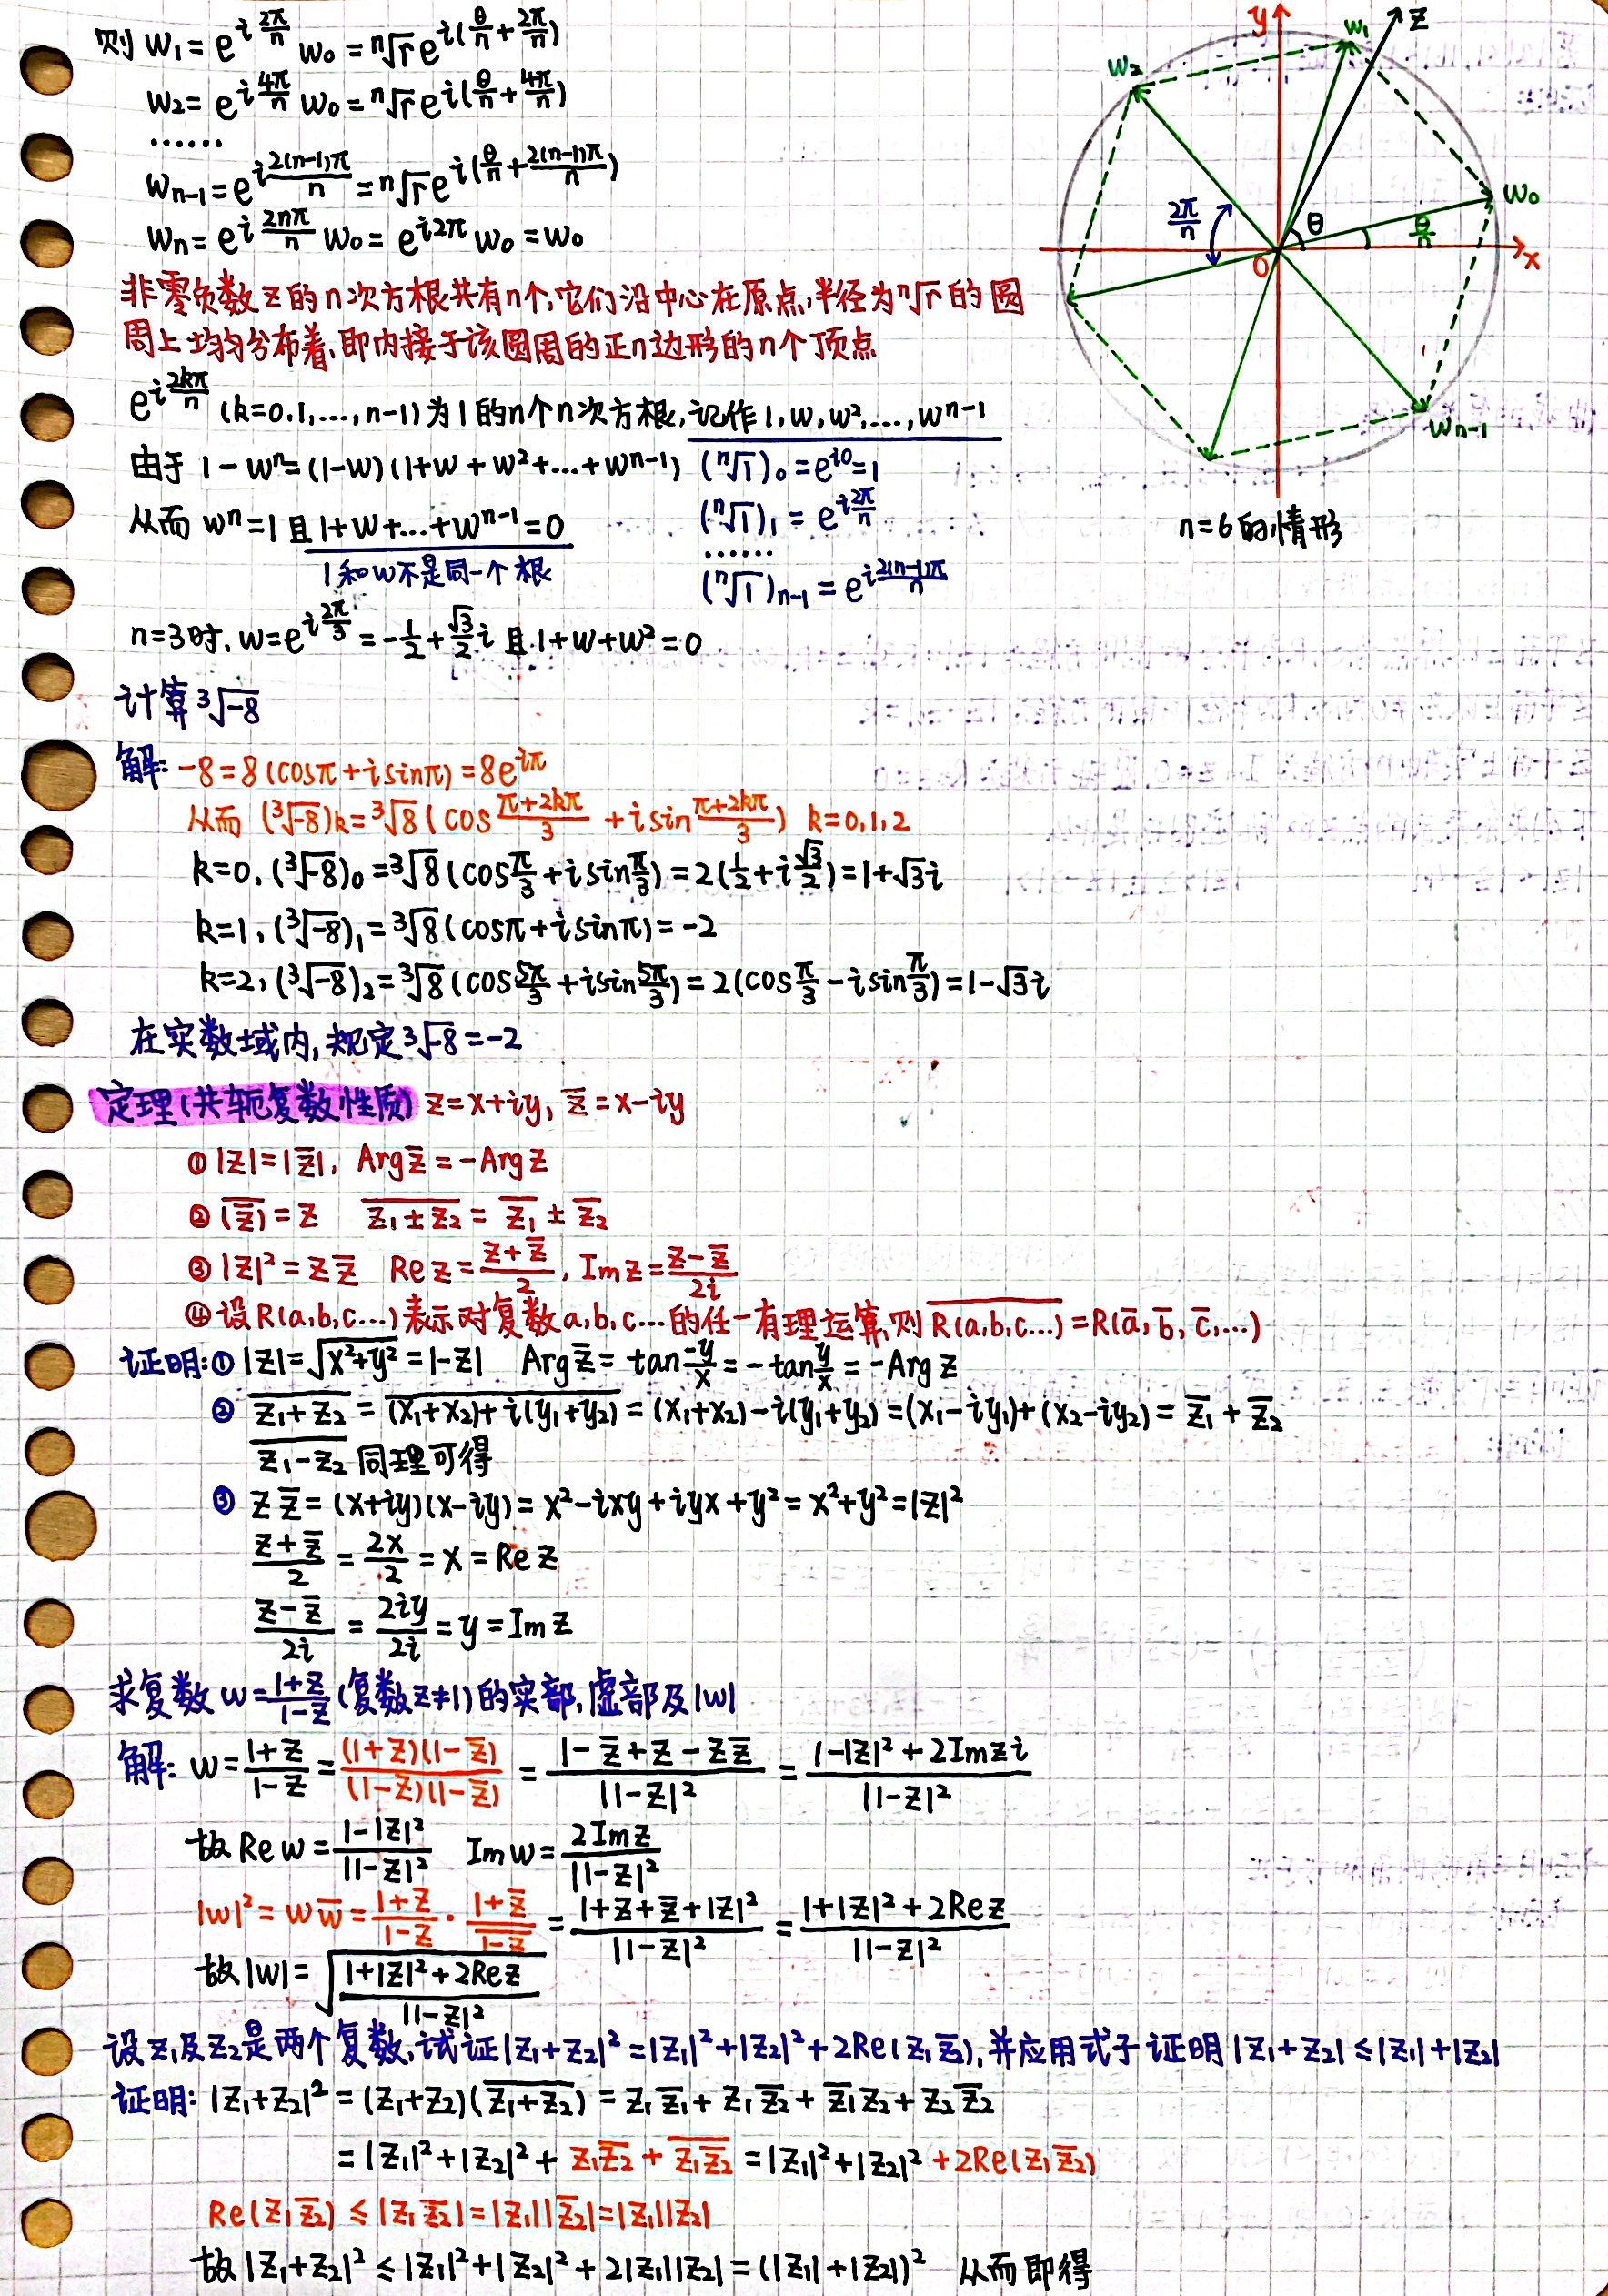 则 w₁ = e^{i 2π/n} w₀ = ⁿ√r e^{i(θ/n + 2π/n)}
w₂ = e^{i 4π/n} w₀ = ⁿ√r e^{i(θ/n + 4π/n)}
……
w_{n-1} = e^{i 2(n-1)π/n} = ⁿ√r e^{i(θ/n + 2(n-1)π/n)}
w_n = e^{i 2nπ/n} w₀ = e^{i2π} w₀ = w₀
非零负数z的n次方根共有n个,它们沿中心在原点,半径为ⁿ√r的圆
周上均匀分布着,即内接于该圆周的正n边形的n个顶点
e^{i 2kπ/n} (k=0,1,...,n-1)为1的n个n次方根,记作1,w,w²,...,w^{n-1}
由于 1-wⁿ=(1-w)(1+w+w²+...+w^{n-1})
从而 wⁿ=1且1+w+...+w^{n-1}=0
1和w不是同一个根
(ⁿ√1)₀ = e^{i0} = 1
(ⁿ√1)₁ = e^{i 2π/n}
……
(ⁿ√1)_{n-1} = e^{i 2(n-1)π/n}
y
z
w₁
w₂
w₀
2π/n
θ
θ/n
0
x
w_{n-1}
n=6的情形
n=3时, w=e^{i 2π/3} = -1/2 + √3/2 i 且 1+w+w²=0
计算 ³√-8
解: -8=8(cosπ+isinπ)=8e^{iπ}
从而 (³√-8)k=³√8(cos (π+2kπ)/3 + isin (π+2kπ)/3) k=0,1,2
k=0, (³√-8)₀=³√8(cos π/3 + isin π/3)=2(1/2+i √3/2)=1+√3i
k=1, (³√-8)₁=³√8(cosπ+isinπ)=-2
k=2, (³√-8)₂=³√8(cos 5π/3 + isin 5π/3)=2(cos π/3 - isin π/3)=1-√3i
在实数域内,规定³√-8=-2
定理(共轭复数性质) z=x+iy, z̅=x-iy
① |z|=|z̅|, Arg z̅=-Arg z
② \overline{(z̅)}=z \overline{z₁±z₂}=z̅₁±z̅₂
③ |z|²=z z̅ Re z=(z+z̅)/2, Im z=(z-z̅)/2i
④ 设R(a,b,c...)表示对复数a,b,c...的任一有理运算,则\overline{R(a,b,c...)}=R(a̅,b̅,c̅,...)
证明:① |z|=√(x²+y²)=|-z| Arg z̅=tan -y/x=-tan y/x=-Arg z
② \overline{z₁+z₂}=\overline{(x₁+x₂)+i(y₁+y₂)}=(x₁+x₂)-i(y₁+y₂)=(x₁-iy₁)+(x₂-iy₂)=z̅₁+z̅₂
\overline{z₁-z₂} 同理可得
③ z z̅=(x+iy)(x-iy)=x²-ixy+iyx+y²=x²+y²=|z|²
(z+z̅)/2 = 2x/2 = x = Re z
(z-z̅)/2i = 2iy/2i = y = Im z
求复数 w=(1+z)/(1-z) (复数z≠1)的实部,虚部及|w|
解: w=(1+z)/(1-z)=(1+z)(1-z̅)/(1-z)(1-z̅)=(1-z̅+z-z z̅)/|1-z|²=(1-|z|²+2Imzi)/|1-z|²
故 Re w=(1-|z|²)/|1-z|² Im w=2Imz/|1-z|²
|w|²=w w̅=(1+z)/(1-z)·(1+z̅)/\overline{1-z}=(1+z+z̅+|z|²)/|1-z|²=(1+|z|²+2Rez)/|1-z|²
故|w|=√((1+|z|²+2Rez)/|1-z|²)
设z₁及z₂是两个复数,试证|z₁+z₂|²=|z₁|²+|z₂|²+2Re(z₁z̅₂),并应用式子证明|z₁+z₂|≤|z₁|+|z₂|
证明: |z₁+z₂|²=(z₁+z₂)(\overline{z₁+z₂})=z₁z̅₁+z₁z̅₂+z̅₁z₂+z₂z̅₂
=|z₁|²+|z₂|²+z₁z̅₂+\overline{z₁z̅₂}=|z₁|²+|z₂|²+2Re(z₁z̅₂)
Re(z₁z̅₂)≤|z₁z̅₂|=|z₁||z̅₂|=|z₁||z₂|
故|z₁+z₂|²≤|z₁|²+|z₂|²+2|z₁||z₂|=(|z₁|+|z₂|)² 从而即得